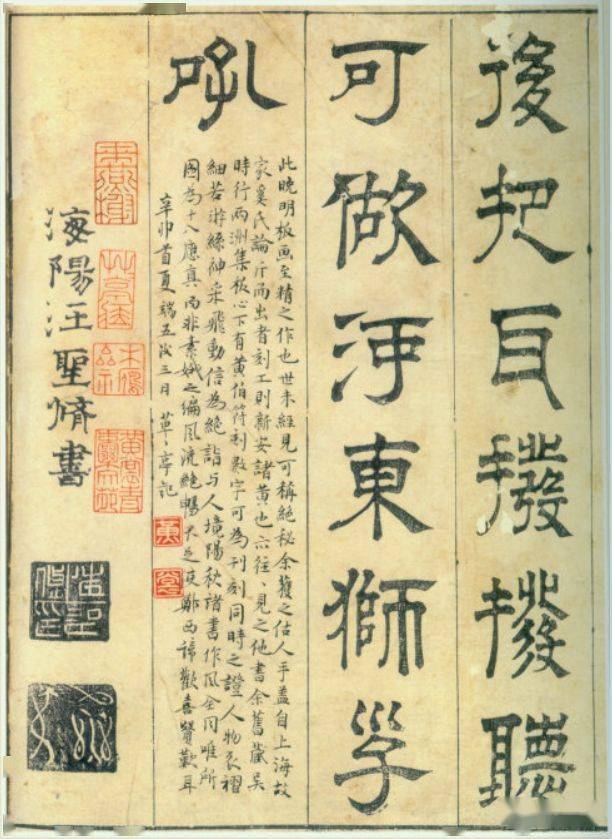 後把耳撥撥聽
可做河東獅子
吼
此晚明板画至精之作也世未經見可称絕秘余獲之估人手盖自上海故
家奚氏論斤而出者刻工則新安諸黃也六徃、見之他書余舊藏吳
時行兩洲集板心下有黃伯符刻數字可為刊刻同時之證人物衣褶
細若游絲神采飛動信為絕詣与人境陽秋諸書作風全同唯所
圖為十八應真而非素娥之編風流絕暢
鄭西諦歡喜贊歎耳
辛卯首夏端五後三日 草、亭記
黃
裳
來燕榭
草草亭藏
黃裳青囊文苑
海陽汪聖脩書